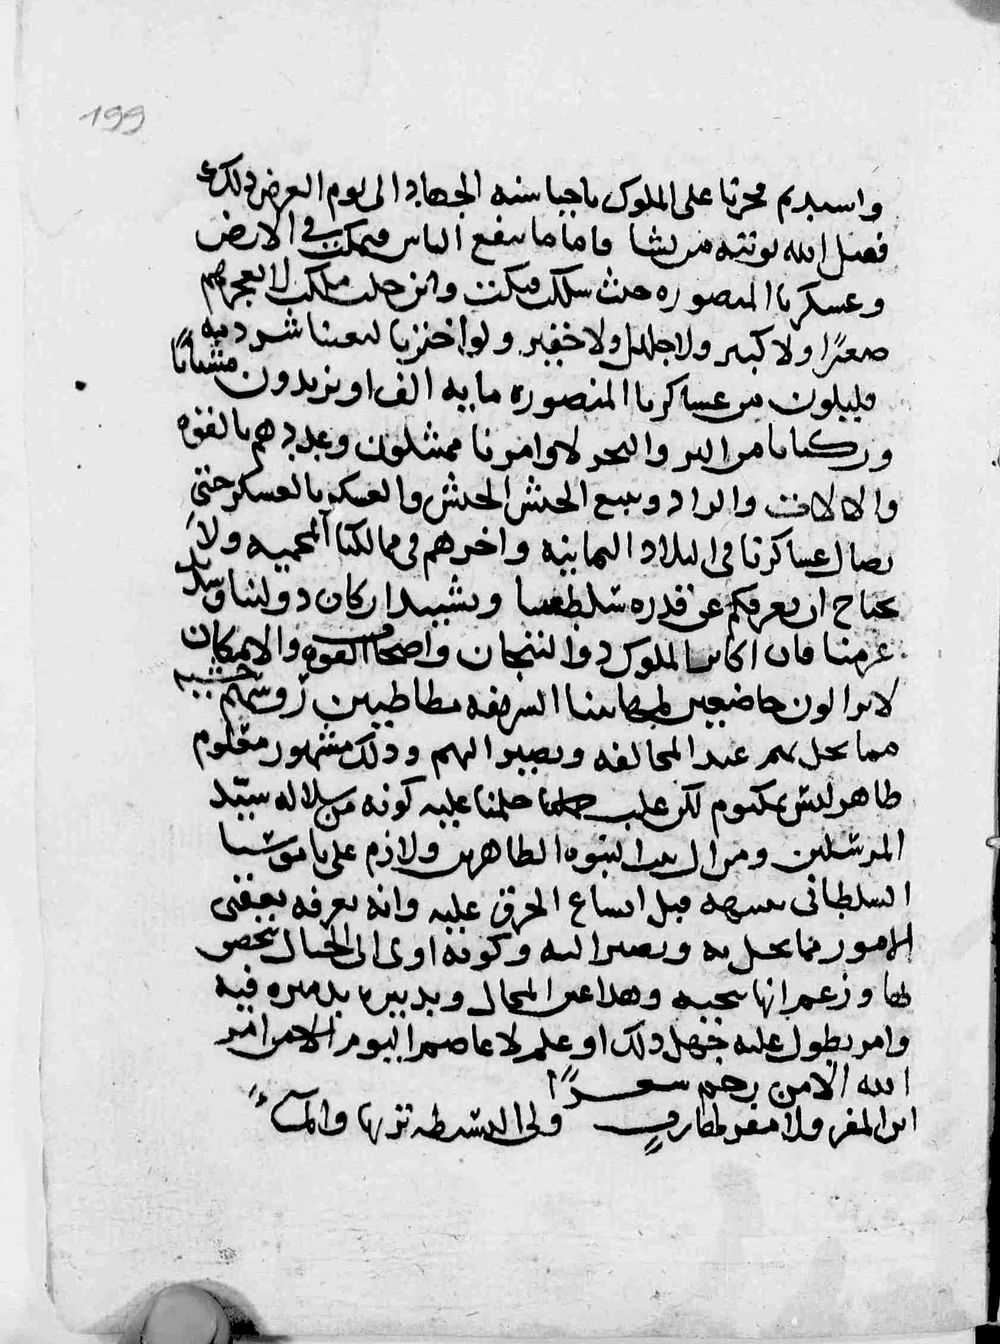 199
واستديم فخرنا على الملوك باحيا سنه الجهاد الى يوم العرض ذلك
فضل الله يوتيه من يشا واما ما ينفع الناس فيمكث في الارض
وعساكرنا المنصوره حيث سلكت فتكت واين حلت ملكت لا يعجزهم
صغيرًا ولا كبير ولا جليل ولا حقير ولو اخترنا لعينا شرذمه
قليلون من عساكرنا المنصوره مايه الف او يزيدون مشاتًا
وركبانا من البر والبحر لاوامرنا ممتثلون ونمددهم بالقوه
والالات والزاد ونتبع الجيش الجيش والعسكر بالعسكر حتى
يصال عساكرنا في البلاد اليمانيه واخرهم في ممالكنا المحميه ولا
يحتاج ان نعرفكم عن قدره سلطنتنا وتشييد اركان دولتنا وشد
عزمنا فان اكابر الملوك ذوا التيجان واصحاب القوه والامكان
لا يزالون خاضعين لمهابتنا الشريفه مطاطيين روسهم خشيه
مما يحل بهم عند المخالفه ويصير اليهم وذلك مشهور معلوم
ظاهر ليس بمكتوم لكن غلب حلمنا عليه كونه من سلاله سيد
المرسلين ومن ال بيت النبوه الطاهرين ولازم على ناموسنا
السلطاني تنبيهه قبل اتساع الخرق عليه وانه نعرفه بعقبى
الامور فيما يحل به ويصير اليه وكونه اوى الى الجبال تحصن
لها وزعم انها تنجيه وهذا عين المحال وتدبير تدميره فيه
وامر يطول عليه جهل ذلك او علم لا عاصم اليوم من امر
الله الا من رحم شعرًا
اين المفر ولا مفر لهارب ولي البسيطه برها والماء